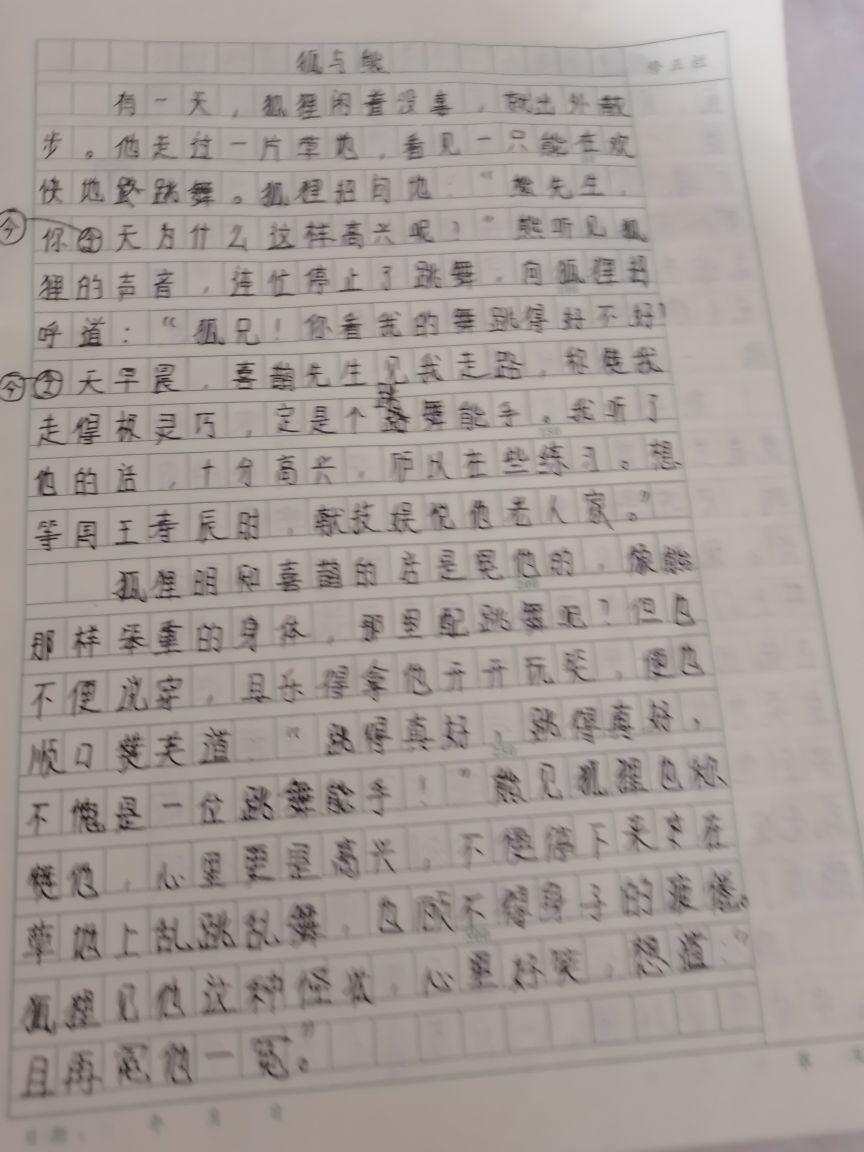 狐与熊
修正栏
有一天，狐狸闲着没事，就出外散
步。他走过一片草地，看见一只能在欢
快地跳舞。狐狸招问他："熊先生，
今
你今天为什么这样高兴呢？"熊听见狐
狸的声音，连忙停止了跳舞，向狐狸招
呼道："狐兄！你看我的舞跳得好不好！
今
今天早晨，喜鹊先生见我走路，称赞我
走得极灵巧，定是个跳舞能手。我听了
他的话，十分高兴，所以在些练习。想
等国王寿辰时，献技娱悦他老人家。"
狐狸明知喜鹊的话是冤他的，像熊
那样笨重的身体，那里配跳舞呢？但也
不便说穿，且乐得拿他开开玩笑，便也
顺口赞美道："跳得真好，跳得真好，
不愧是一位跳舞能手！"熊见狐狸也称
赞他，心里更是高兴，不便停下来又在
草地上乱跳乱舞，也顾不得身子的疲倦。
狐狸见他这种怪状，心里好笑，想道："
且再冤他一冤。"
日期： 年 月 日